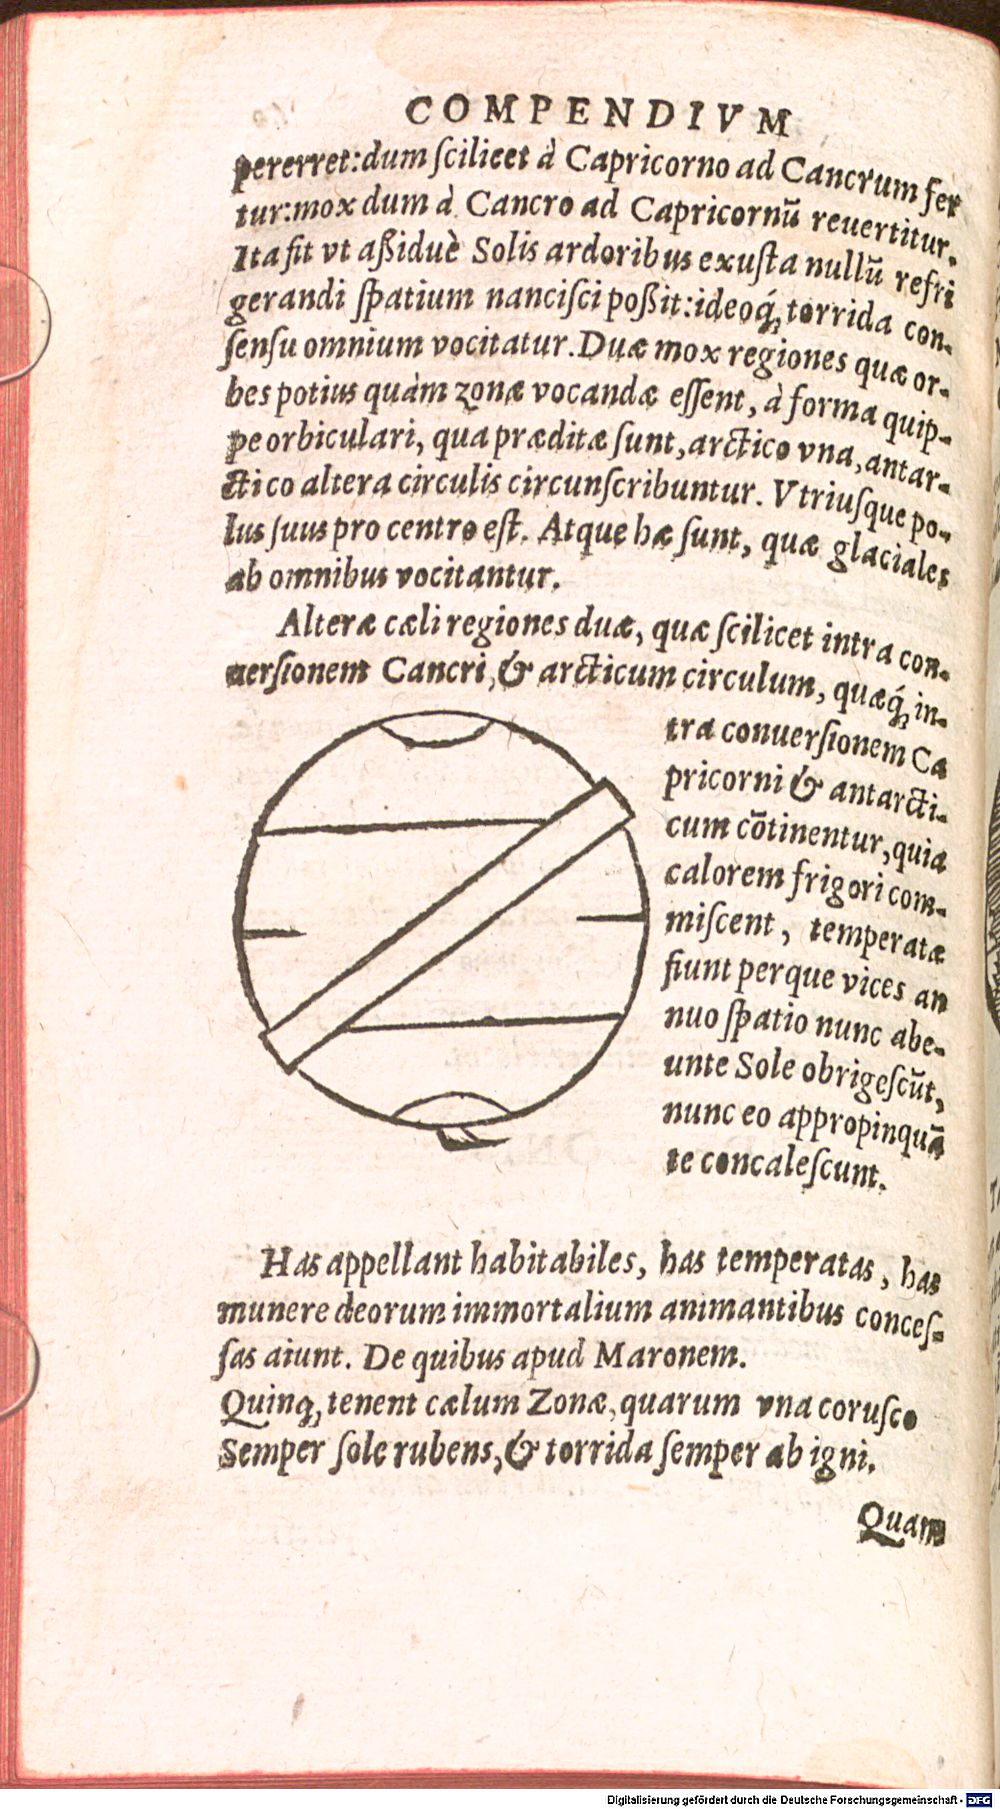 COMPENDIVM
pererret:dum ſcilicet à Capricorno ad Cancrum fer
tur:mox dum à Cancro ad Capricornū reuertitur.
Ita fit vt aßiduè Solis ardoribus exuſta nullū refri
gerandi ſpatium nanciſci poßit:ideoq́; torrida con-
ſenſu omnium vocitatur. Duæ mox regiones quæ or-
bes potius quàm zonæ vocandæ eſſent, à forma quip-
pe orbiculari, qua præditæ ſunt, arctico vna, antar-
ctico altera circulis circunſcribuntur. Vtriuſque po-
lus ſuus pro centro eſt. Atque hæ ſunt, quæ glaciales
ab omnibus vocitantur.
Alteræ cæli regiones duæ, quæ ſcilicet intra con-
uerſionem Cancri, & arcticum circulum, quæq́; in-
tra conuerſionem Ca
pricorni & antarcti-
cum cōtinentur, quia
calorem frigori com-
miſcent, temperatæ
fiunt perque vices an
nuo ſpatio nunc abe-
unte Sole obrigeſcūt,
nunc eo appropinquā
te concaleſcunt.
Has appellant habitabiles, has temperatas, has
munere deorum immortalium animantibus conceſ-
ſas aiunt. De quibus apud Maronem.
Quinq; tenent cælum Zonæ, quarum vna coruſco
Semper ſole rubens, & torrida ſemper ab igni.
Quam
Digitalisierung gefördert durch die Deutsche Forschungsgemeinschaft - DFG